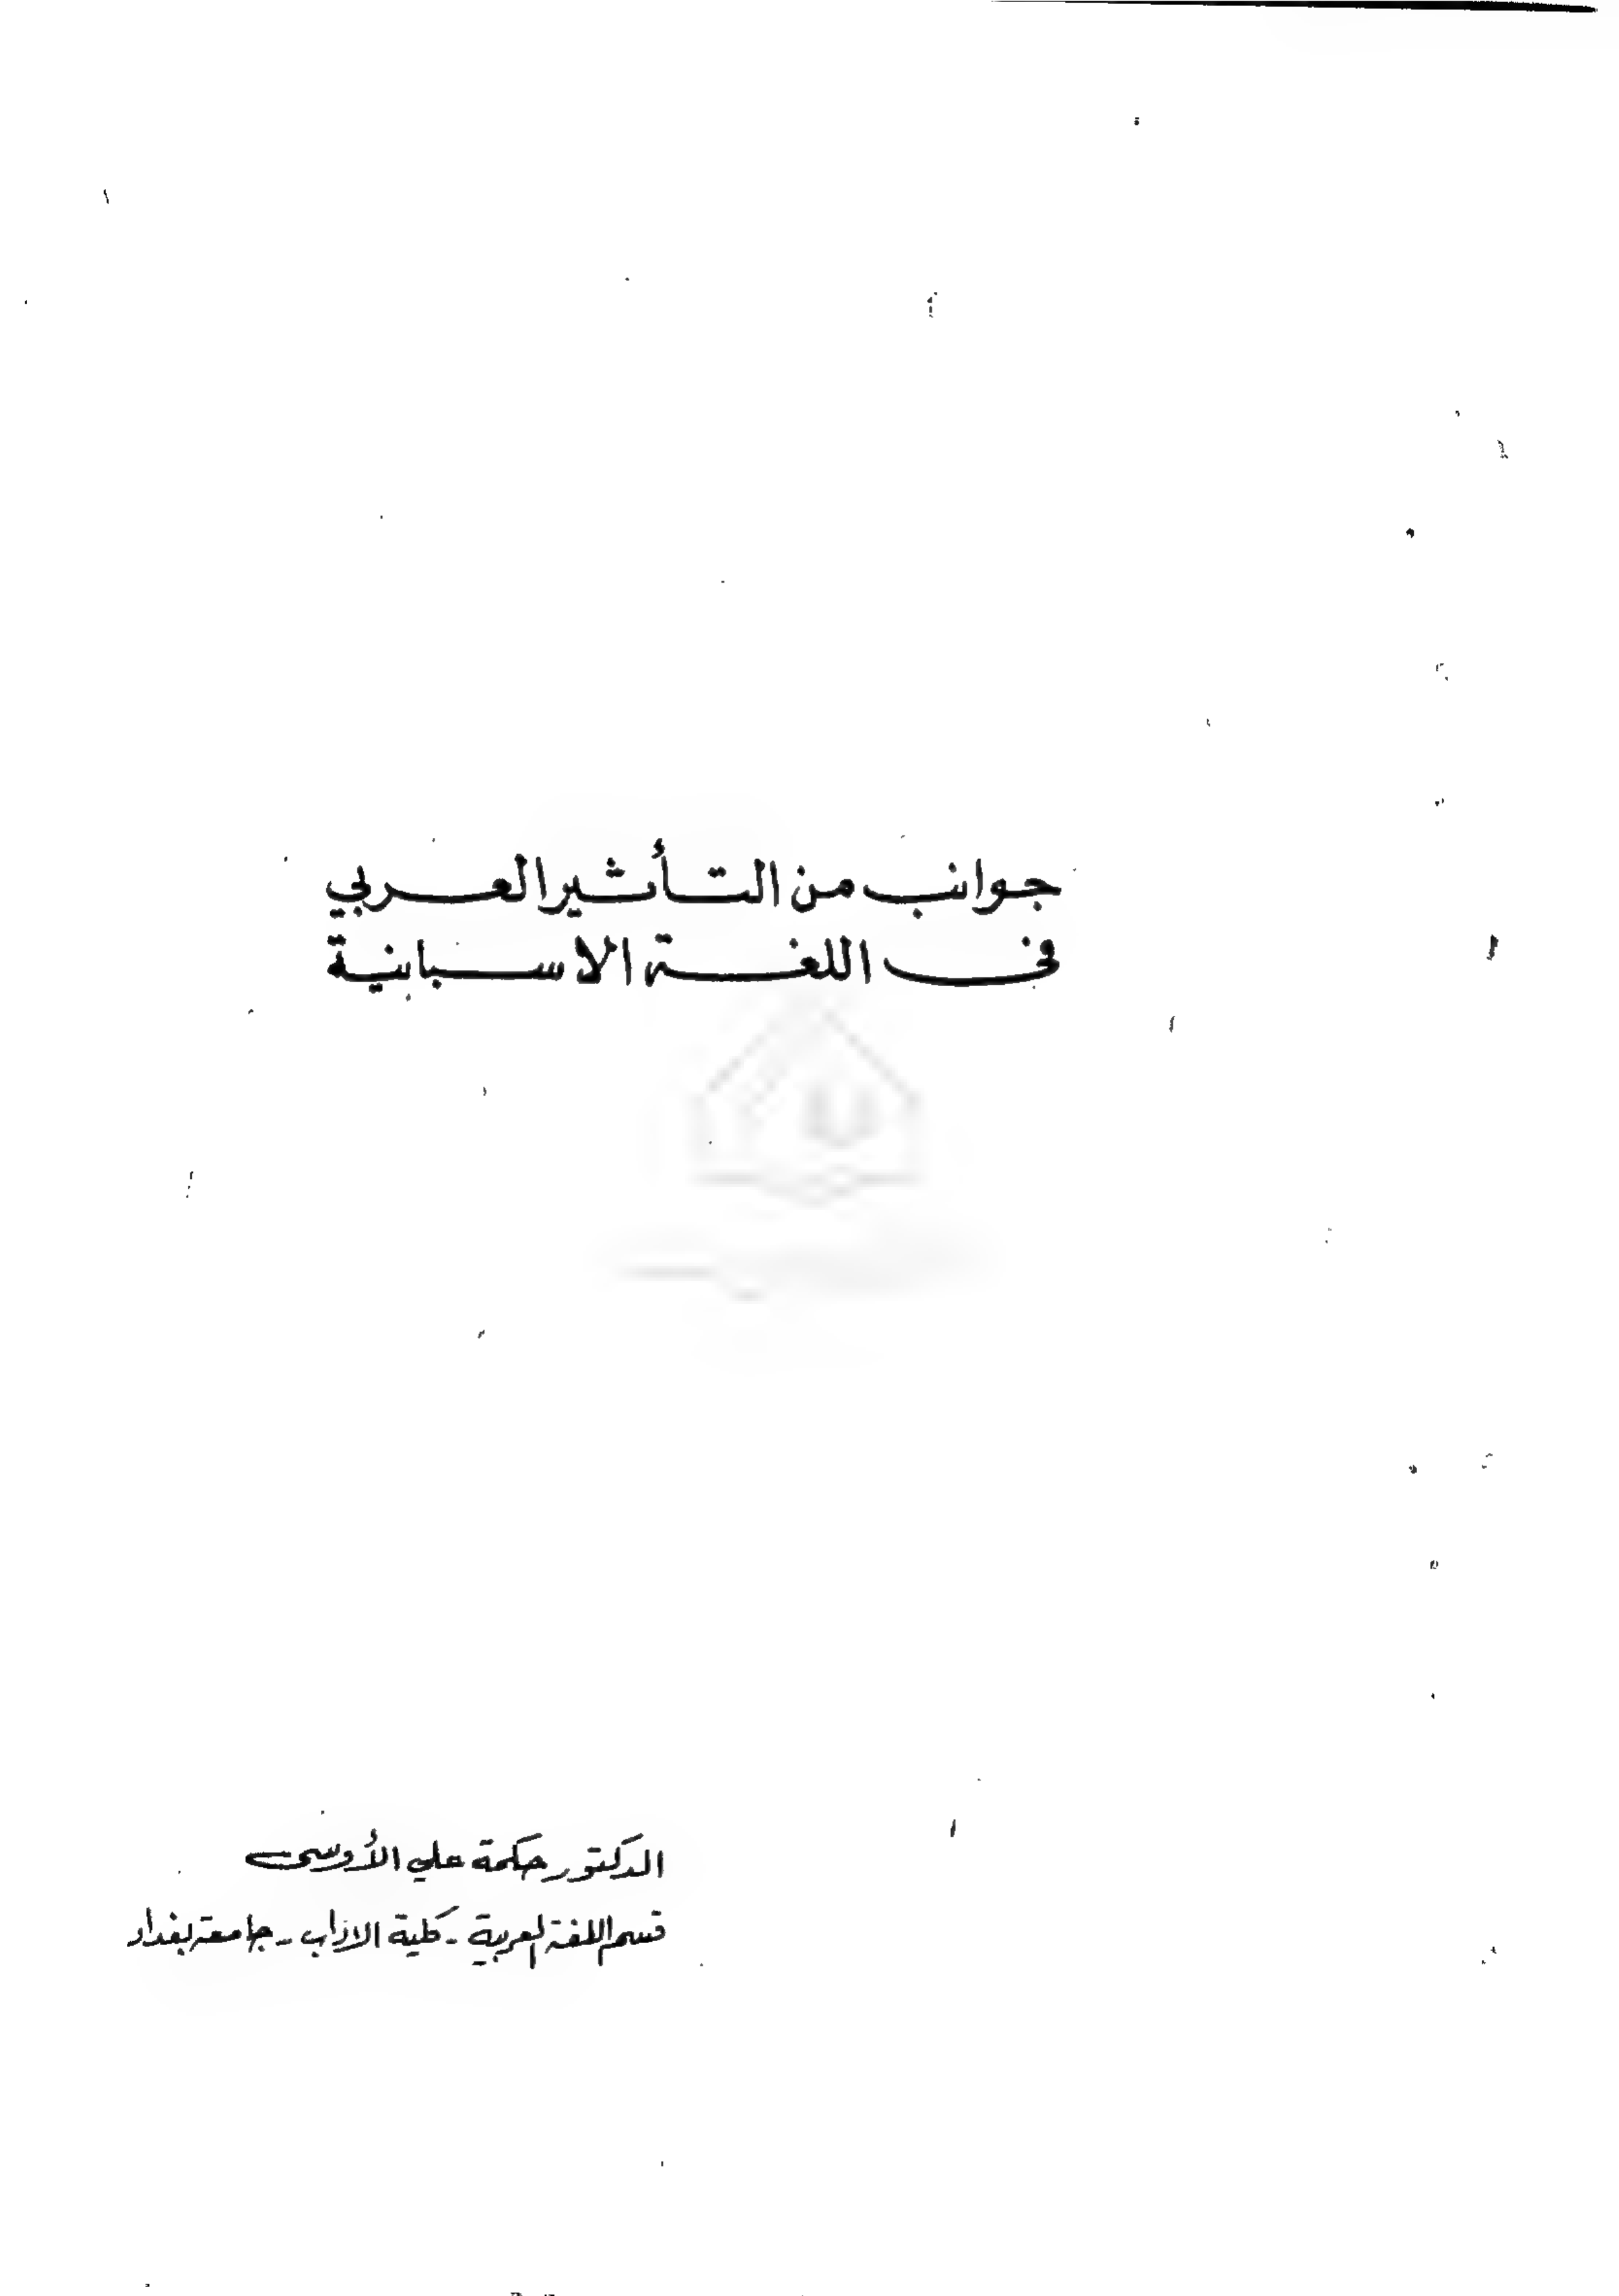 جوانب من التأثير العربي
في اللغة الاسبانية
الدكتور حكمة علي الأوسي
قسم اللغة العربية - كلية الاداب - جامعة بغداد